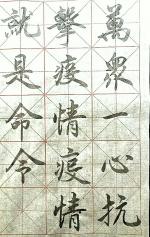 萬衆一心抗
擊疫情疫情
就是命令